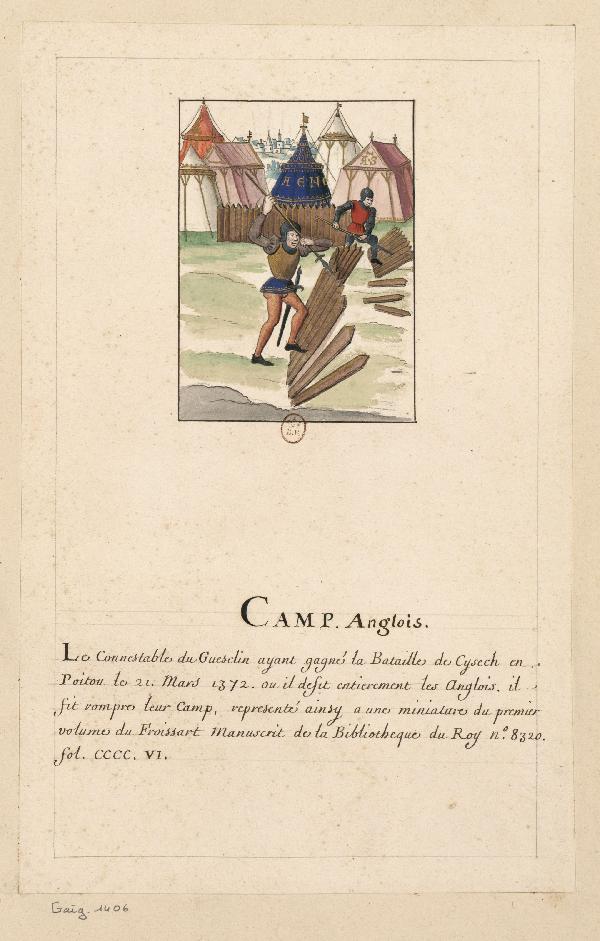 AENO
AS
CAMP. Anglois.
Le Connestable du Guesclin ayant gagné la Bataille de Cysech en
Poitou le 21. Mars 1372. ou il defit entierement les Anglois. il
fit rompre leur Camp, representé ainsy a une miniature du premier
volume du Froissart Manuscrit de la Bibliotheque du Roy n.º 8320.
fol. CCCC. VI.
Gaig. 1406